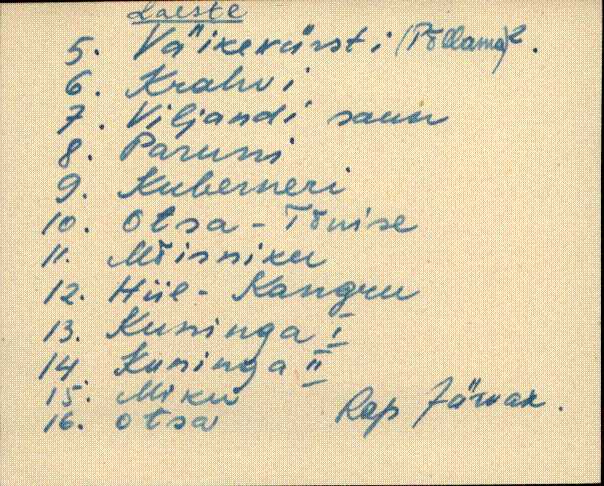 Laeste
5. Väikevürsti (Põllama)2.
6. Krahvi
7. Viljandi saun
8. Paruni
9. Kuberneri
10. Otsa-Tõnise
11. Mõisniku
12. Hiie-Kangru
13. Kuninga I
14 Kuninga II
15. Miku
16. Otsa
Rap Järvak.